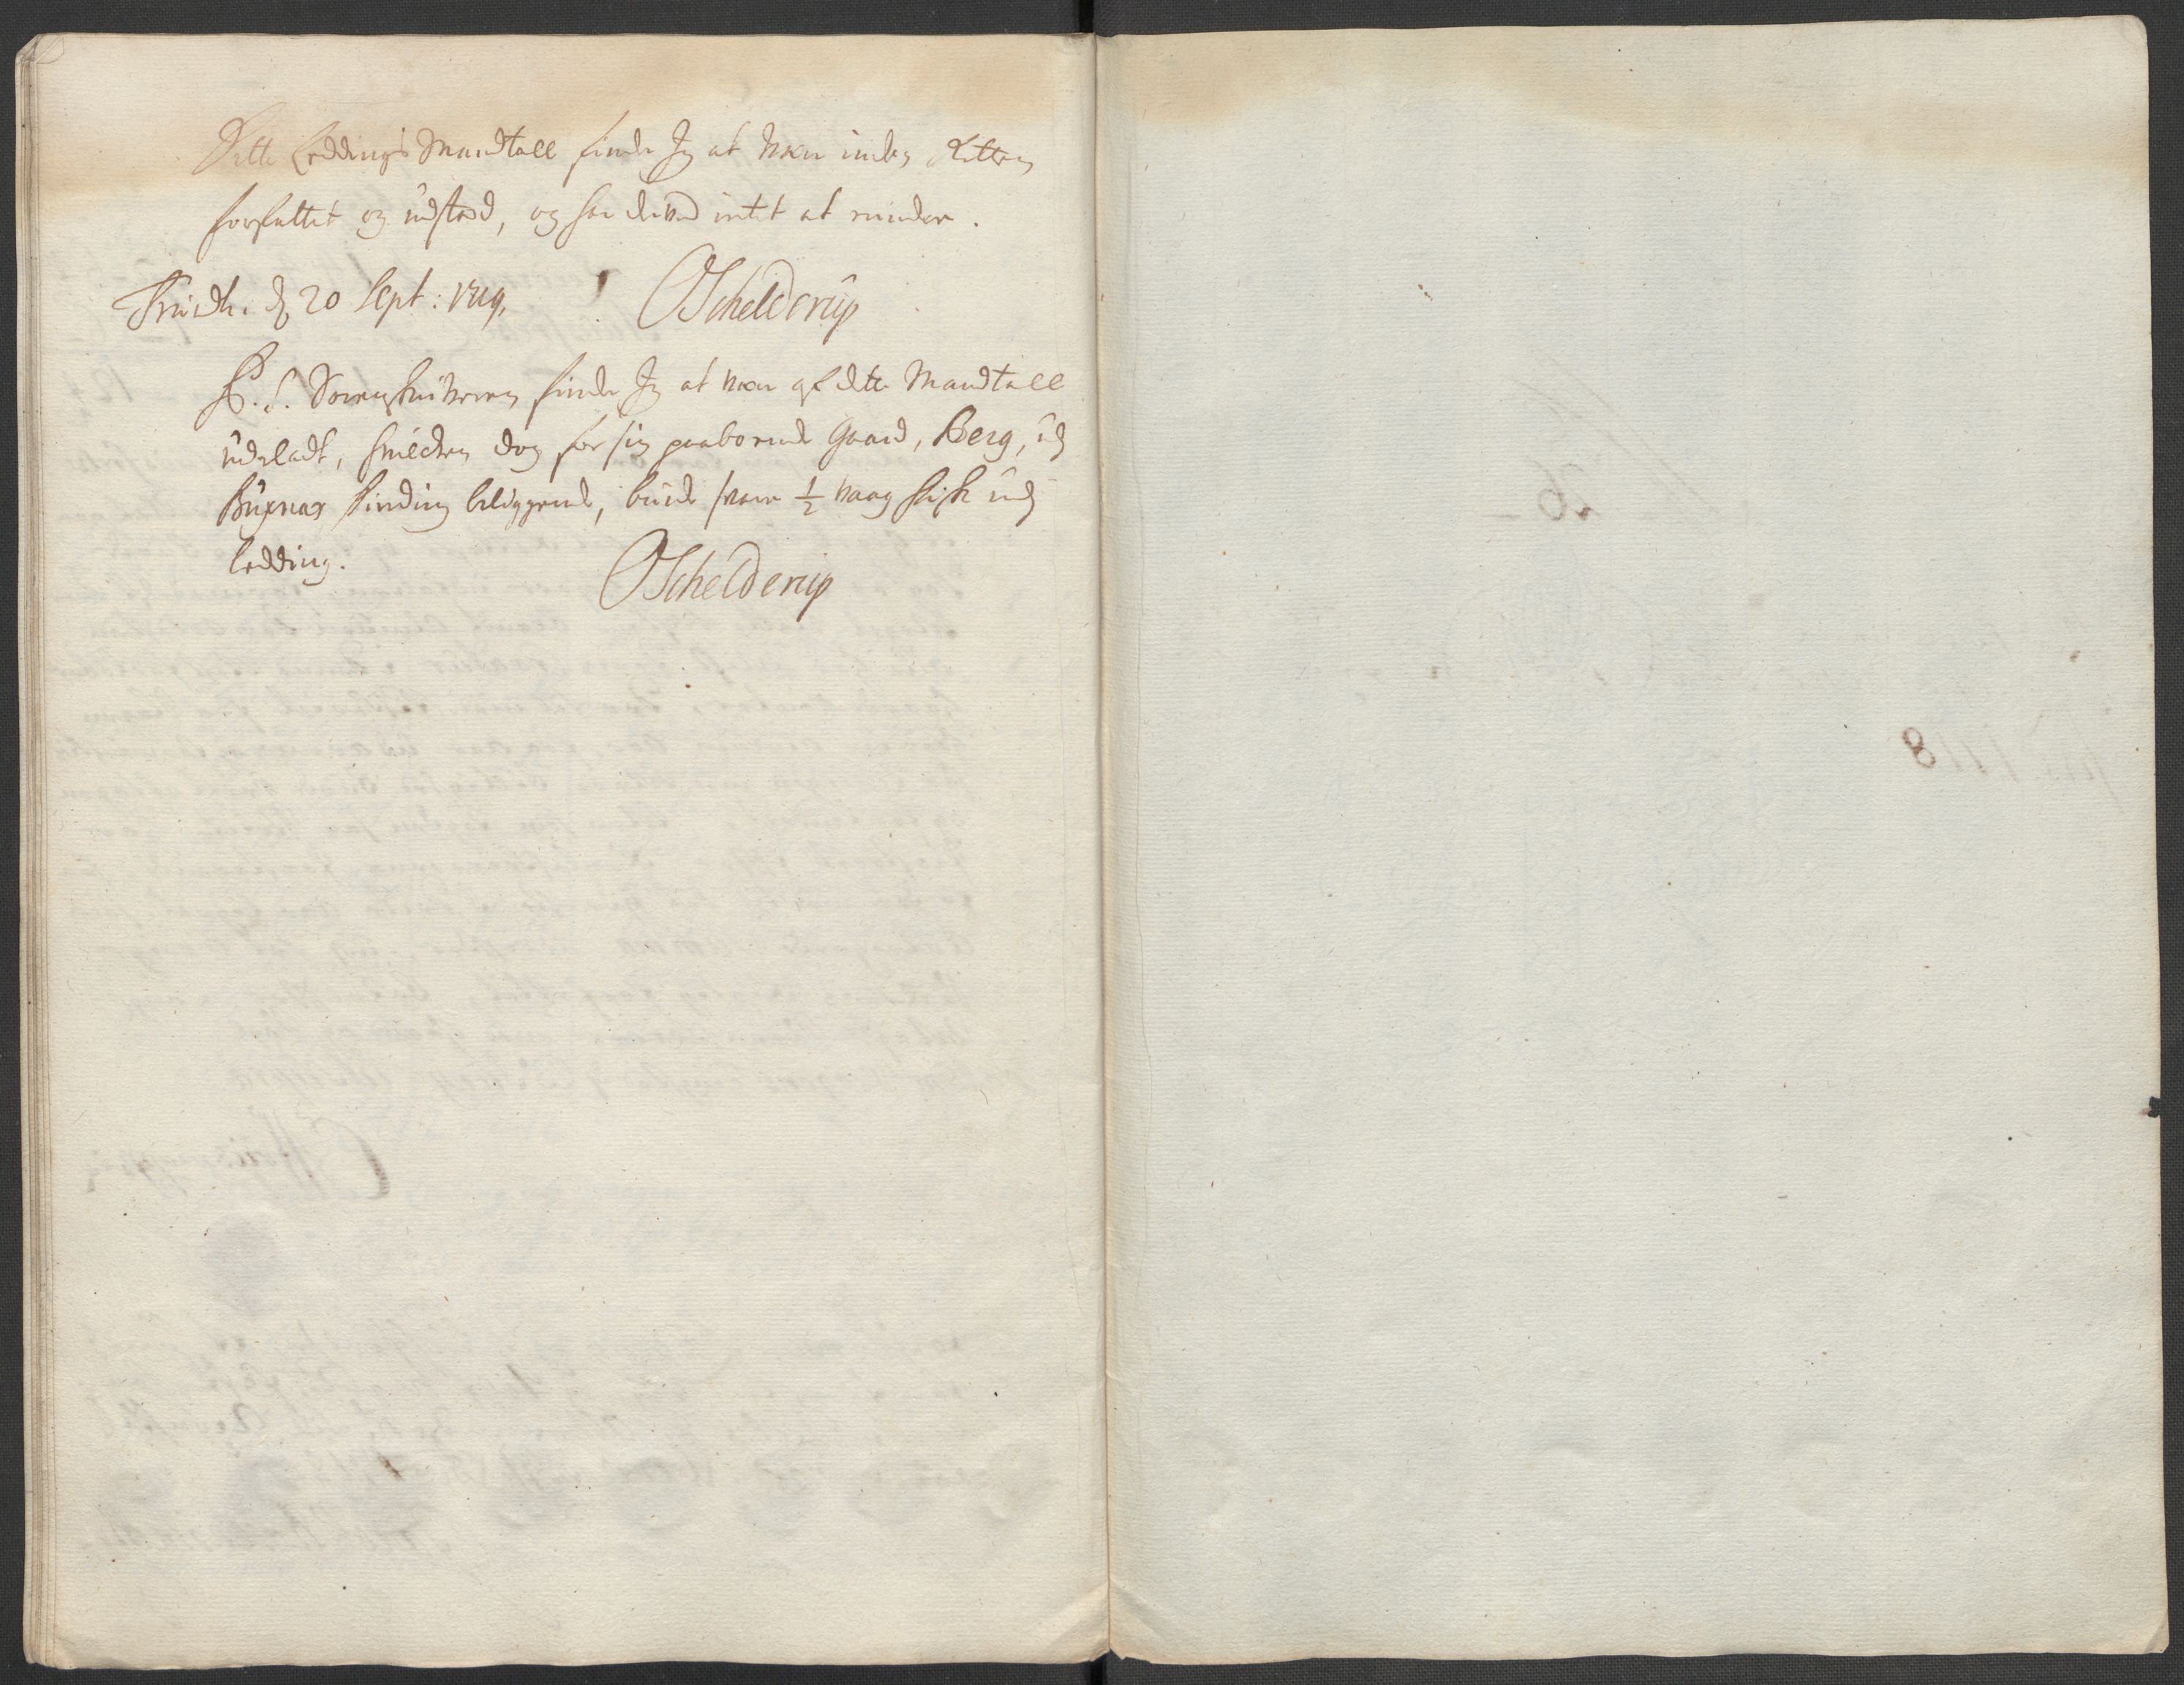 Dette Leddings Mandtall finder Jeg at være inden Retten
forfattet og udstæd, og har derved intet at minder.
Trundh: d 20 Sept: 1719,
OSchelderup
P. S. Sorenskriveren finder Jeg at være af dette Mandtall
udeladt, hvilcken dog for sin paaboende Gaard, Berg, udj
Buxnæs tinding beliggende, burde svare ½ vaag fisk udj
Ledding.
OSchelderup